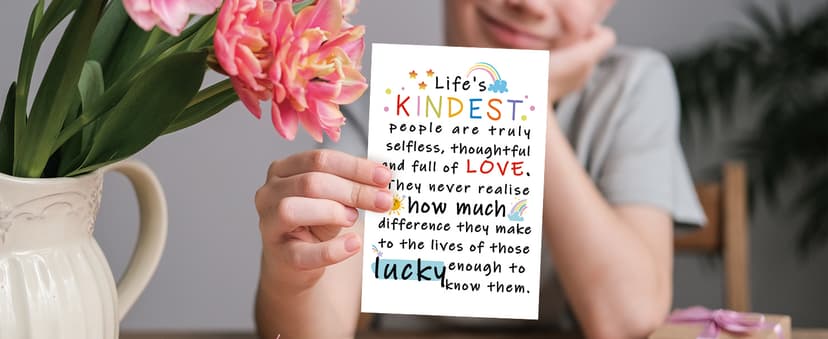 Life's
KINDEST
people are truly
selfless, thoughtful
and full of LOVE.
They never realise
how much
difference they make
to the lives of those
lucky enough to
know them.